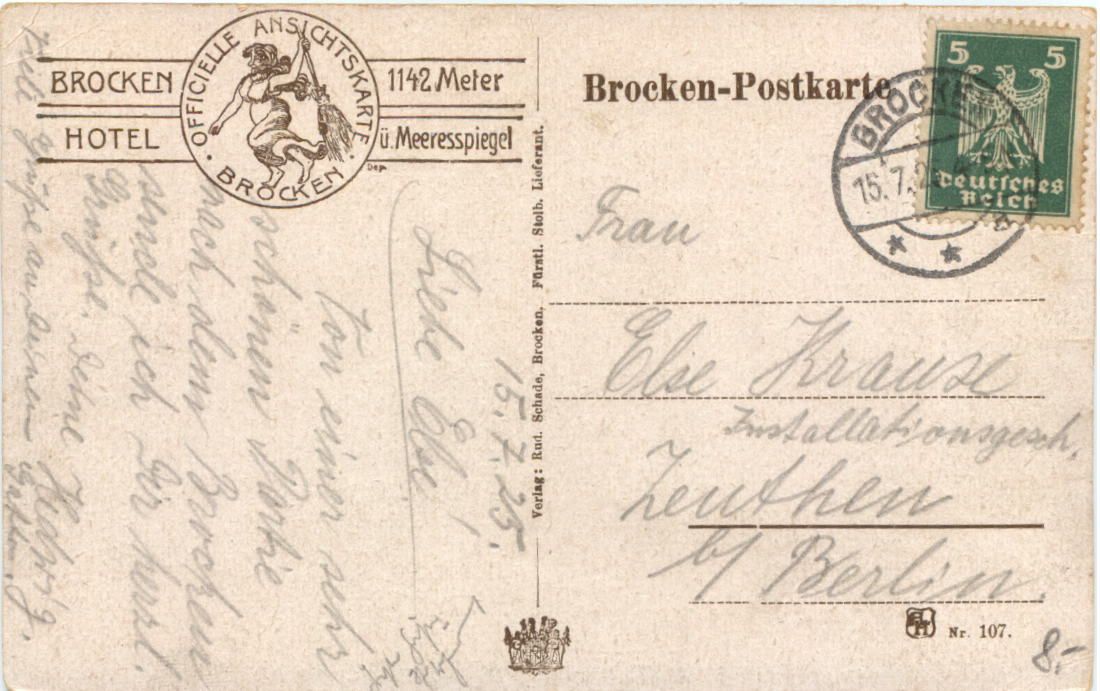 BROCKEN
HOTEL
OFFICIELLE ANSICHTSKARTE
BROCKEN
1142 Meter
ü. Meeresspiegel
Dep.
15.7.25.
Liebe Else!
Von einer sehr
schönen Partie
nach dem Brocken
sende ich Dir herzl.
Grüsse. Deine Hedwig.
Viele Grüße an Deinen
Verlag: Rud. Schade, Brocken, Fürstl. Stolb. Lieferant.
Brocken-Postkarte
BROCKEN
15.7.25
5 5
Deutsches
Reich
Frau
Else Krause
Installationsgesch.
Zeuthen
b/ Berlin.
Nr. 107.
8.-